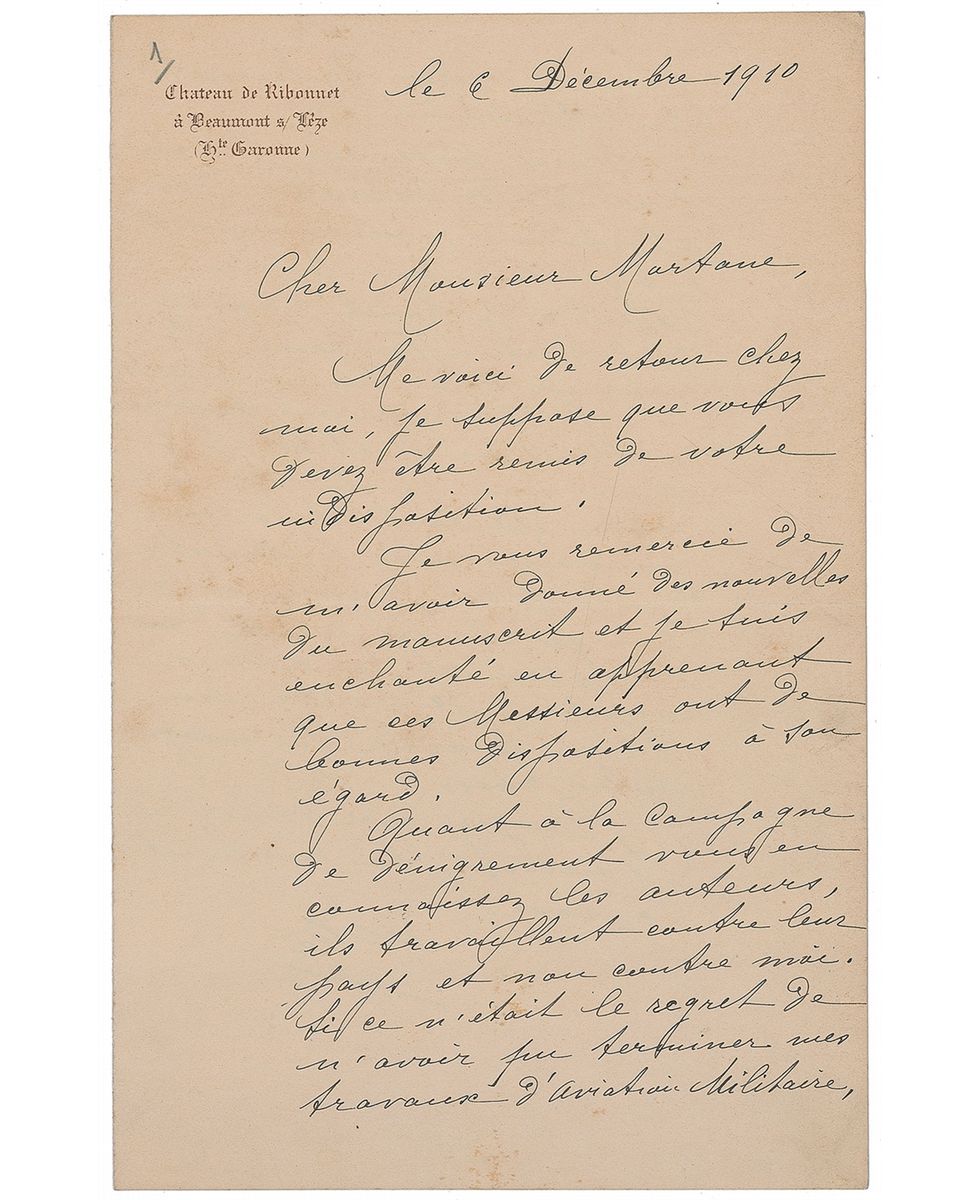 1/
Chateau de Ribonnet
à Beaumont s/ Lèze
(Hte Garonne)
le 6 Décembre 1910
Cher Monsieur Mortane,
Me voici de retour chez
moi, je suppose que vous
devez être remis de votre
indisposition.
Je vous remercie de
m'avoir donné des nouvelles
du manuscrit et je suis
enchanté en apprenant
que ces Messieurs ont de
bonnes dispositions à son
égard.
Quant à la Campagne
de dénigrement vous en
connaissez les auteurs,
ils travaillent contre leur
pays et non contre moi.
si ce n'était le regret de
n'avoir pu terminer mes
travaux d'Aviation Militaire,